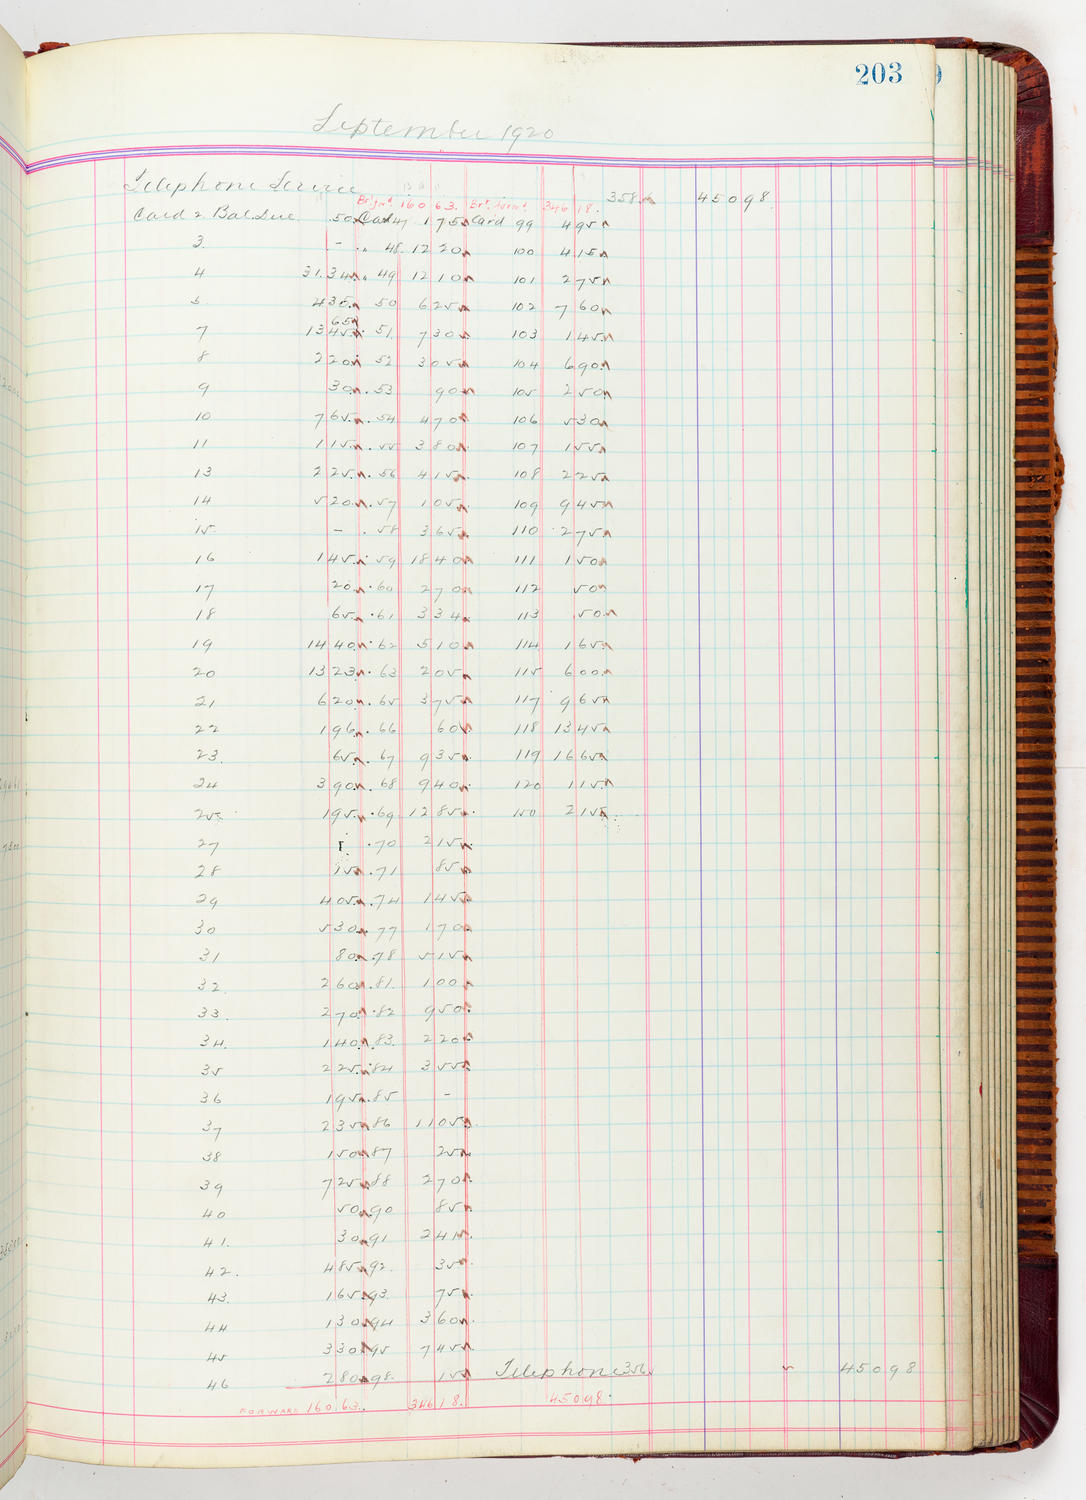 203
September 1920
Telephone Service 358 450 98
Br't for'd 160 63. Br't forw'd. 346 18.
Card 2 Bal. Due 50 Card 47 1 75 Card 99 4 95
3 - " 48 12 20 100 4 15
4 31.34 " 49 12 10 101 2 75
5 4 35 50 6 25 102 7 60
65
7 13 45 51 7 30 103 1 45
8 2 20 52 3 05 104 6 90
9 30 53 90 105 2 50
10 7 65 54 4 70 106 5 30
11 1 15 55 3 80 107 1 55
13 2 25 56 4 15 108 2 25
14 5 20 57 1 05 109 9 45
15 - 58 3 65 110 2 75
16 1 45 59 18 40 111 1 50
17 20 60 2 70 112 50
18 65 61 3 34 113 50
19 14 40 62 5 10 114 1 65
20 13 23 63 2 05 115 6 00
21 6 20 65 3 75 117 9 65
22 1 96 66 60 118 13 45
23 65 67 9 35 119 16 65
24 3 90 68 9 40 120 1 15
25 1 95 69 12 85 150 2 15
27 70 2 15
28 15 71 85
29 4 05 74 1 45
30 5 30 77 1 70
31 80 78 5 15
32 2 60 81 1 00
33 2 70 82 9 50
34 1 40 83 2 20
35 2 25 84 3 55
36 1 95 85 -
37 2 35 86 11 05
38 1 50 87 25
39 7 25 88 2 70
40 50 90 85
41 30 91 2 41
42 4 85 92 35
43 1 65 93 75
44 1 30 94 3 60
45 3 30 95 7 45
46 2 80 98 15 Telephone 356 450 98
FORWARD 160 63. 346 18. 450 98.